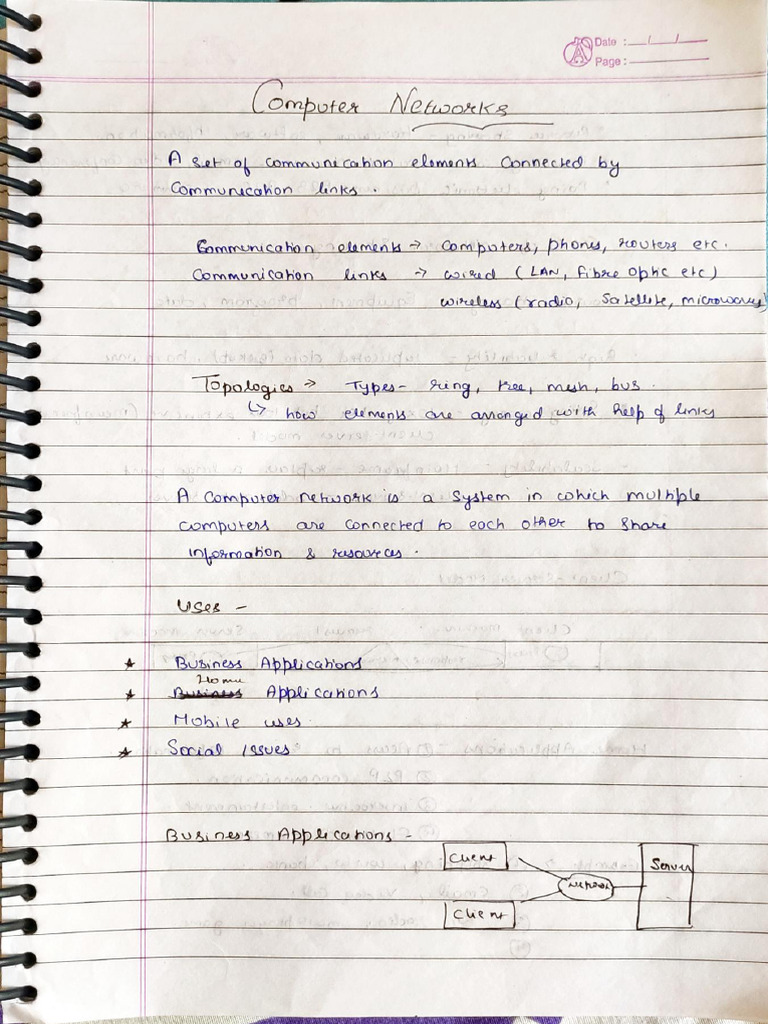 Date : __/__/__
Page :
Computer Networks
A set of communication elements connected by
Communication links .
Communication elements → computers, phones, routers etc.
Communication links → wired (LAN, Fibre optic etc)
wireless (radio, Satellite, microwaves)
Topologies → Types - ring, tree, mesh, bus .
↳ how elements are arranged with help of links
A Computer network is a System in which multiple
computers are connected to each other to share
information & resources .
Uses -
★ Business Applications
Home
★ Business Applications
★ Mobile uses .
★ Social Issues
Business Applications -
Client
Server
Network
Client